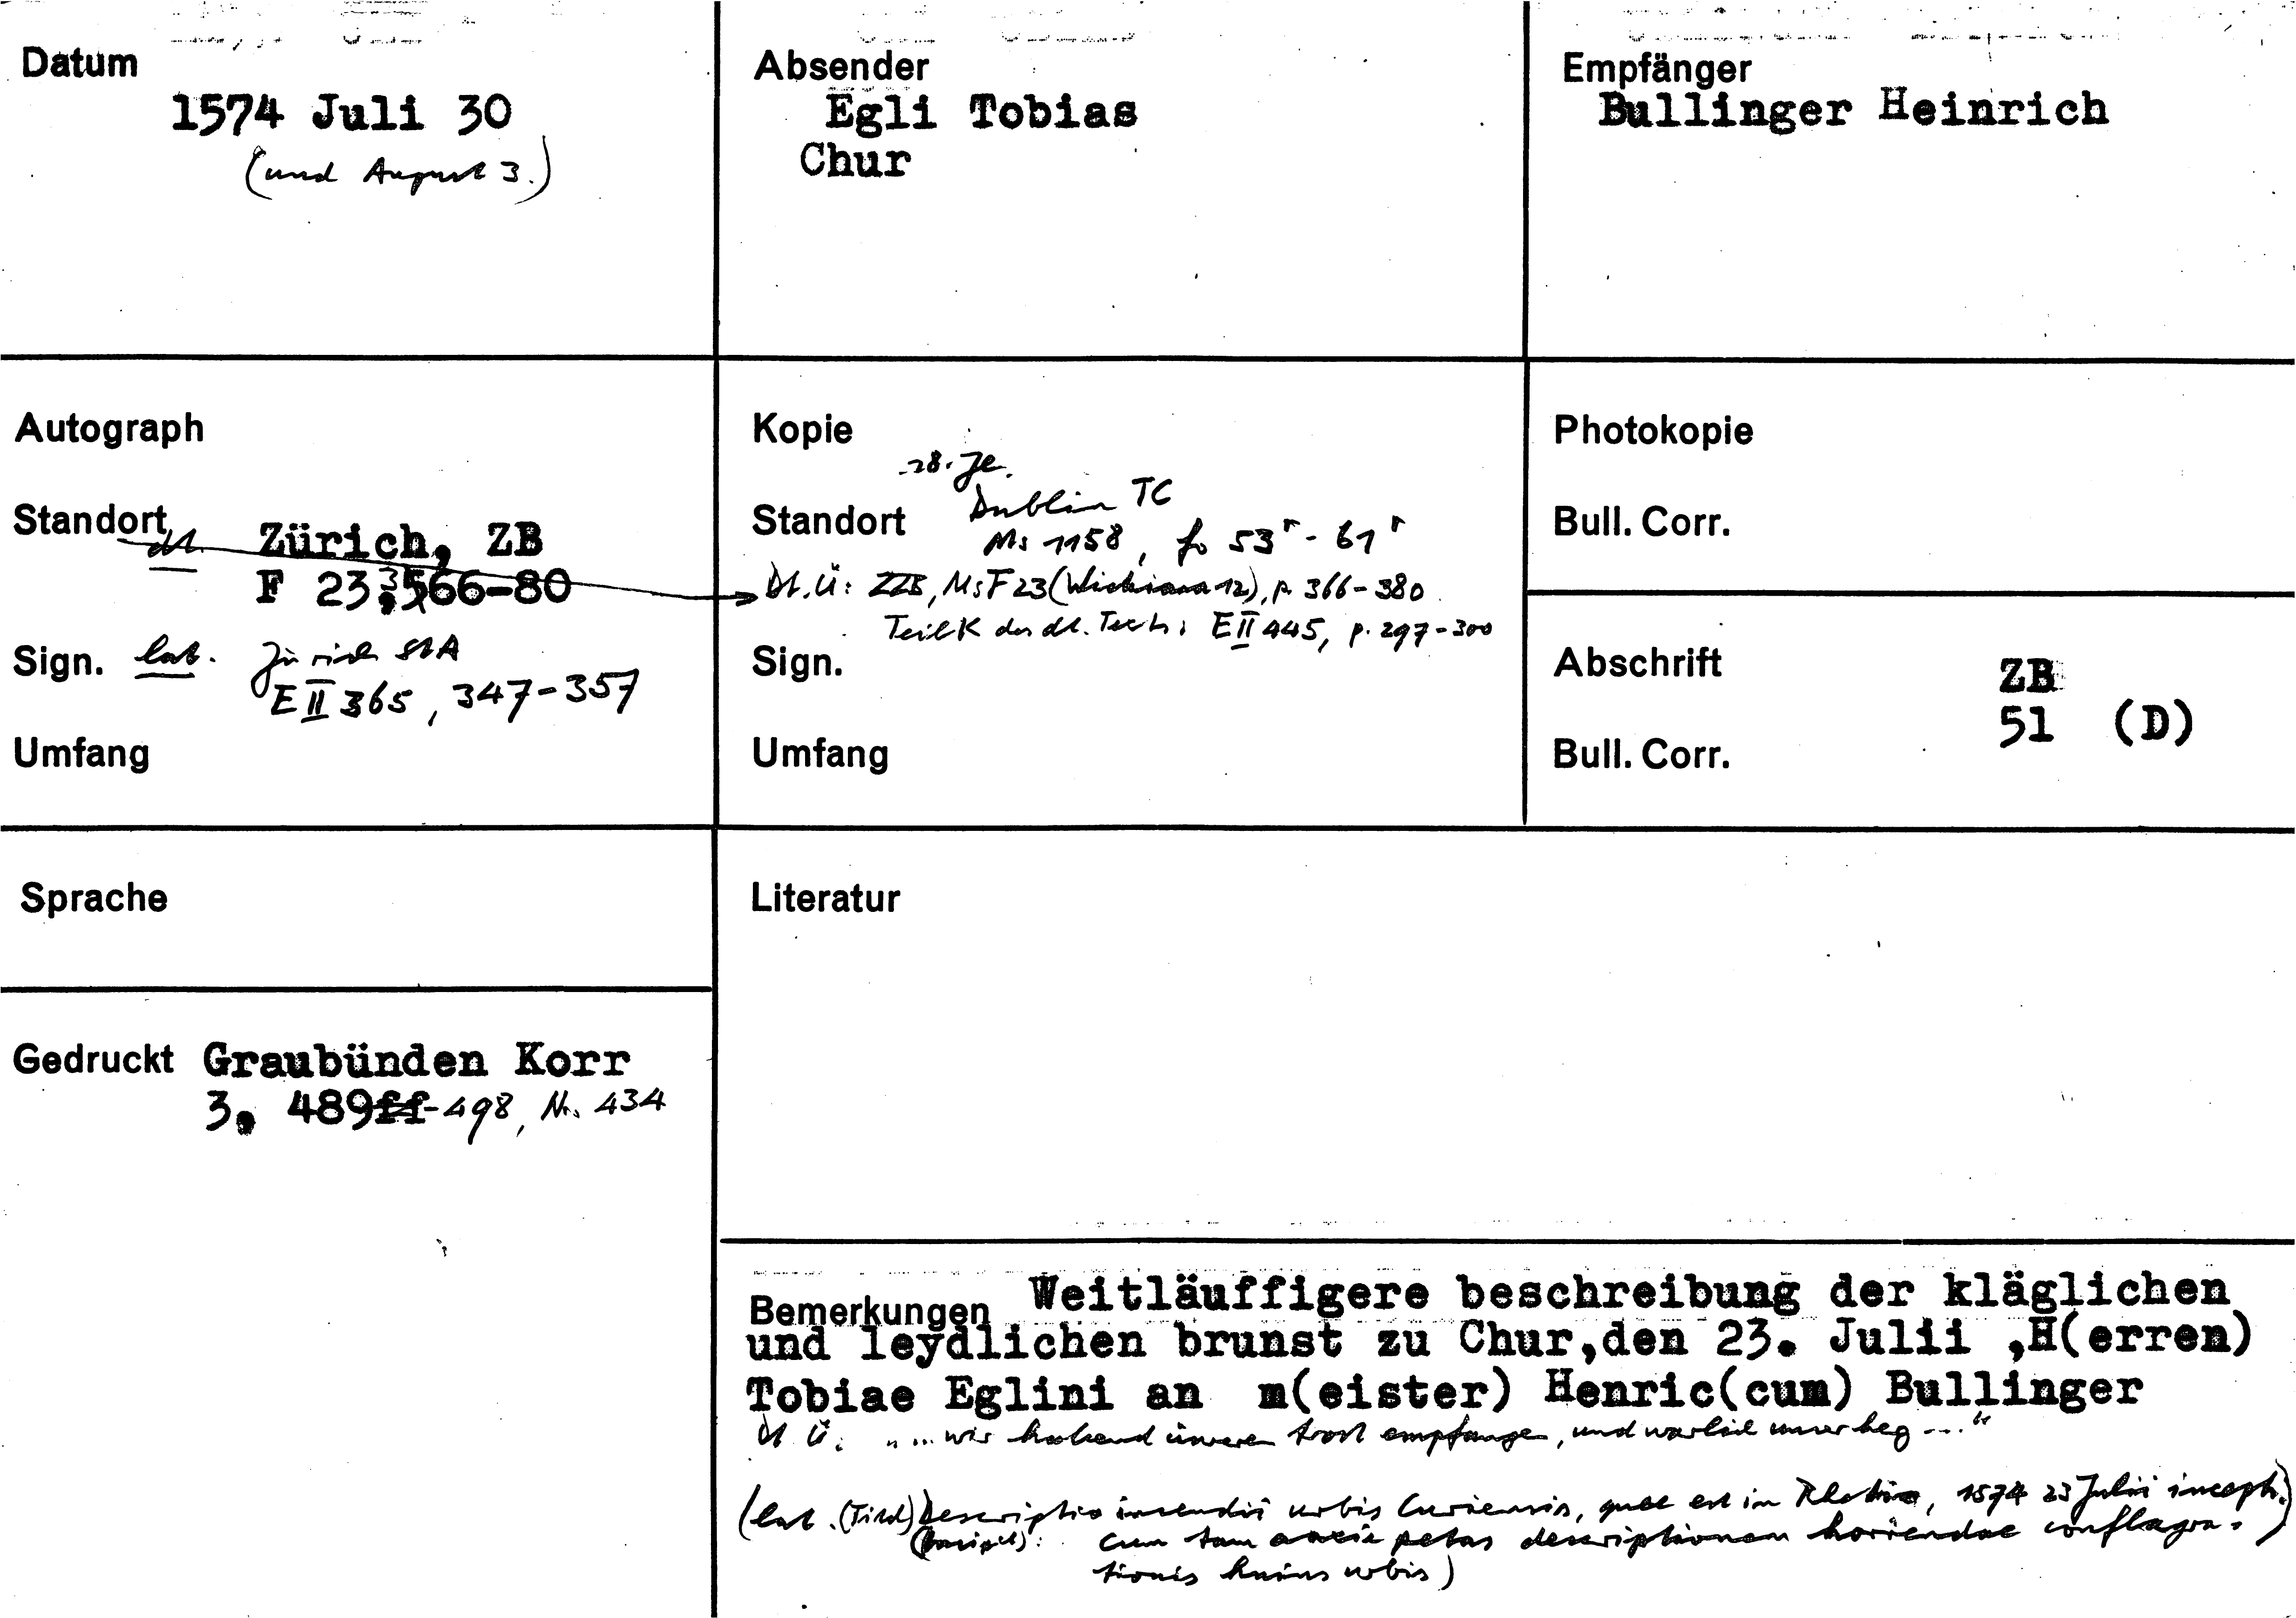 Datum
1574 Juli 30
(und August 3.)
Absender
Egli Tobias
Chur
Empfänger
Bullinger Heinrich
Autograph
Standort
dt. Zürich, ZB
F 23, 366-80
Sign. lat. Zürich StA
E II 365, 347-357
Umfang
Kopie
18. Jh.
Standort Dublin TC
Ms 1158, fo 53r - 61r
Dt. Ü: ZZB, Ms F 23 (Wickiana 12), p. 366-380
Teil K des dt. Texts: E II 445, p. 297-300
Sign.
Umfang
Photokopie
Bull. Corr.
Abschrift ZB
51 (D)
Bull. Corr.
Sprache
Literatur
Gedruckt Graubünden Korr
3, 489ff-498, Nr. 434
Bemerkungen Weitläuffigere beschreibung der kläglichen
und leydlichen brunst zu Chur,den 23. Julii ,H(erren)
Tobiae Eglini an m(eister) Henric(cum) Bullinger
dt Ü: "... wir habend üweren trost empfangen, und warlich unser
(lat. (Titel) Descriptio incendii urbis Curiensis, quae est in Rhetia, 1574 23 Julii incept.)
(Incipit): Cum tam anxie petas descriptionem horrendae conflagra-
tionis huius urbis)